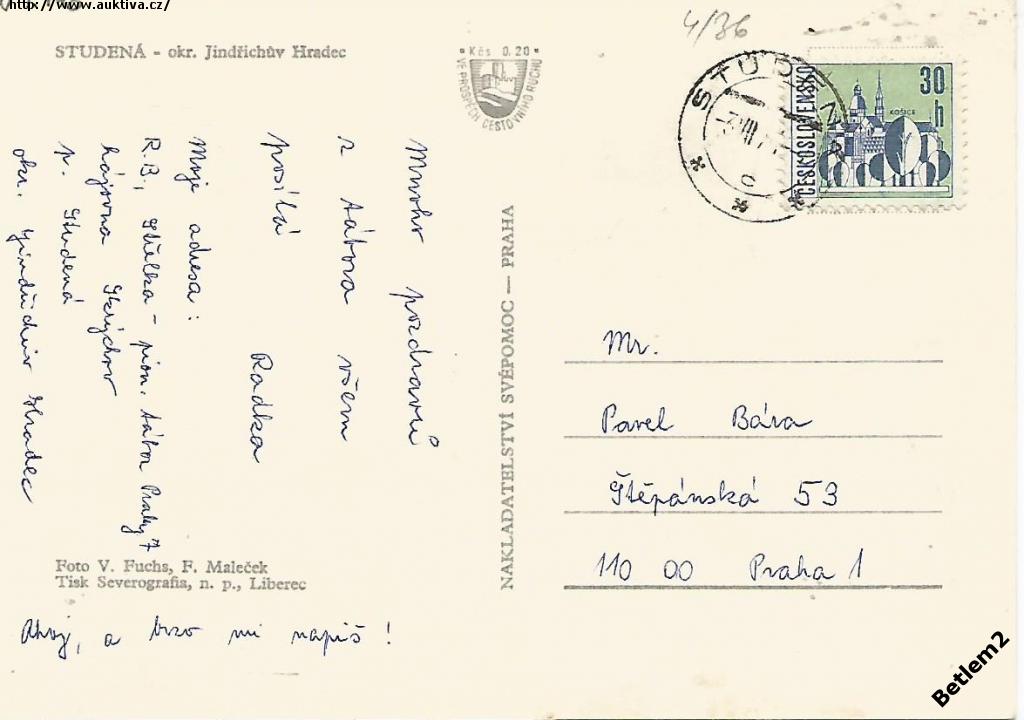 http://www.auktiva.cz/
STUDENÁ - okr. Jindřichův Hradec
Kčs 0.20
VE PROSPĚCH CESTOVNÍHO RUCHU
4/36
STUDENÁ
ČESKOSLOVENSKO
KOŠICE
30
h
Mnoho pozdravů
z tábora všem
posílá Radka
Moje adresa:
R.B., Střelka - pion. tábor Prahy 7
hájovna Skrýchov
p. Studená
okr. Jindřichův Hradec
NAKLADATELSTVÍ SVÉPOMOC — PRAHA
Mr.
Pavel Bára
Štěpánská 53
110 00 Praha 1
Foto V. Fuchs, F. Maleček
Tisk Severografia, n. p., Liberec
Ahoj, a brzo mi napiš!
Betlem2